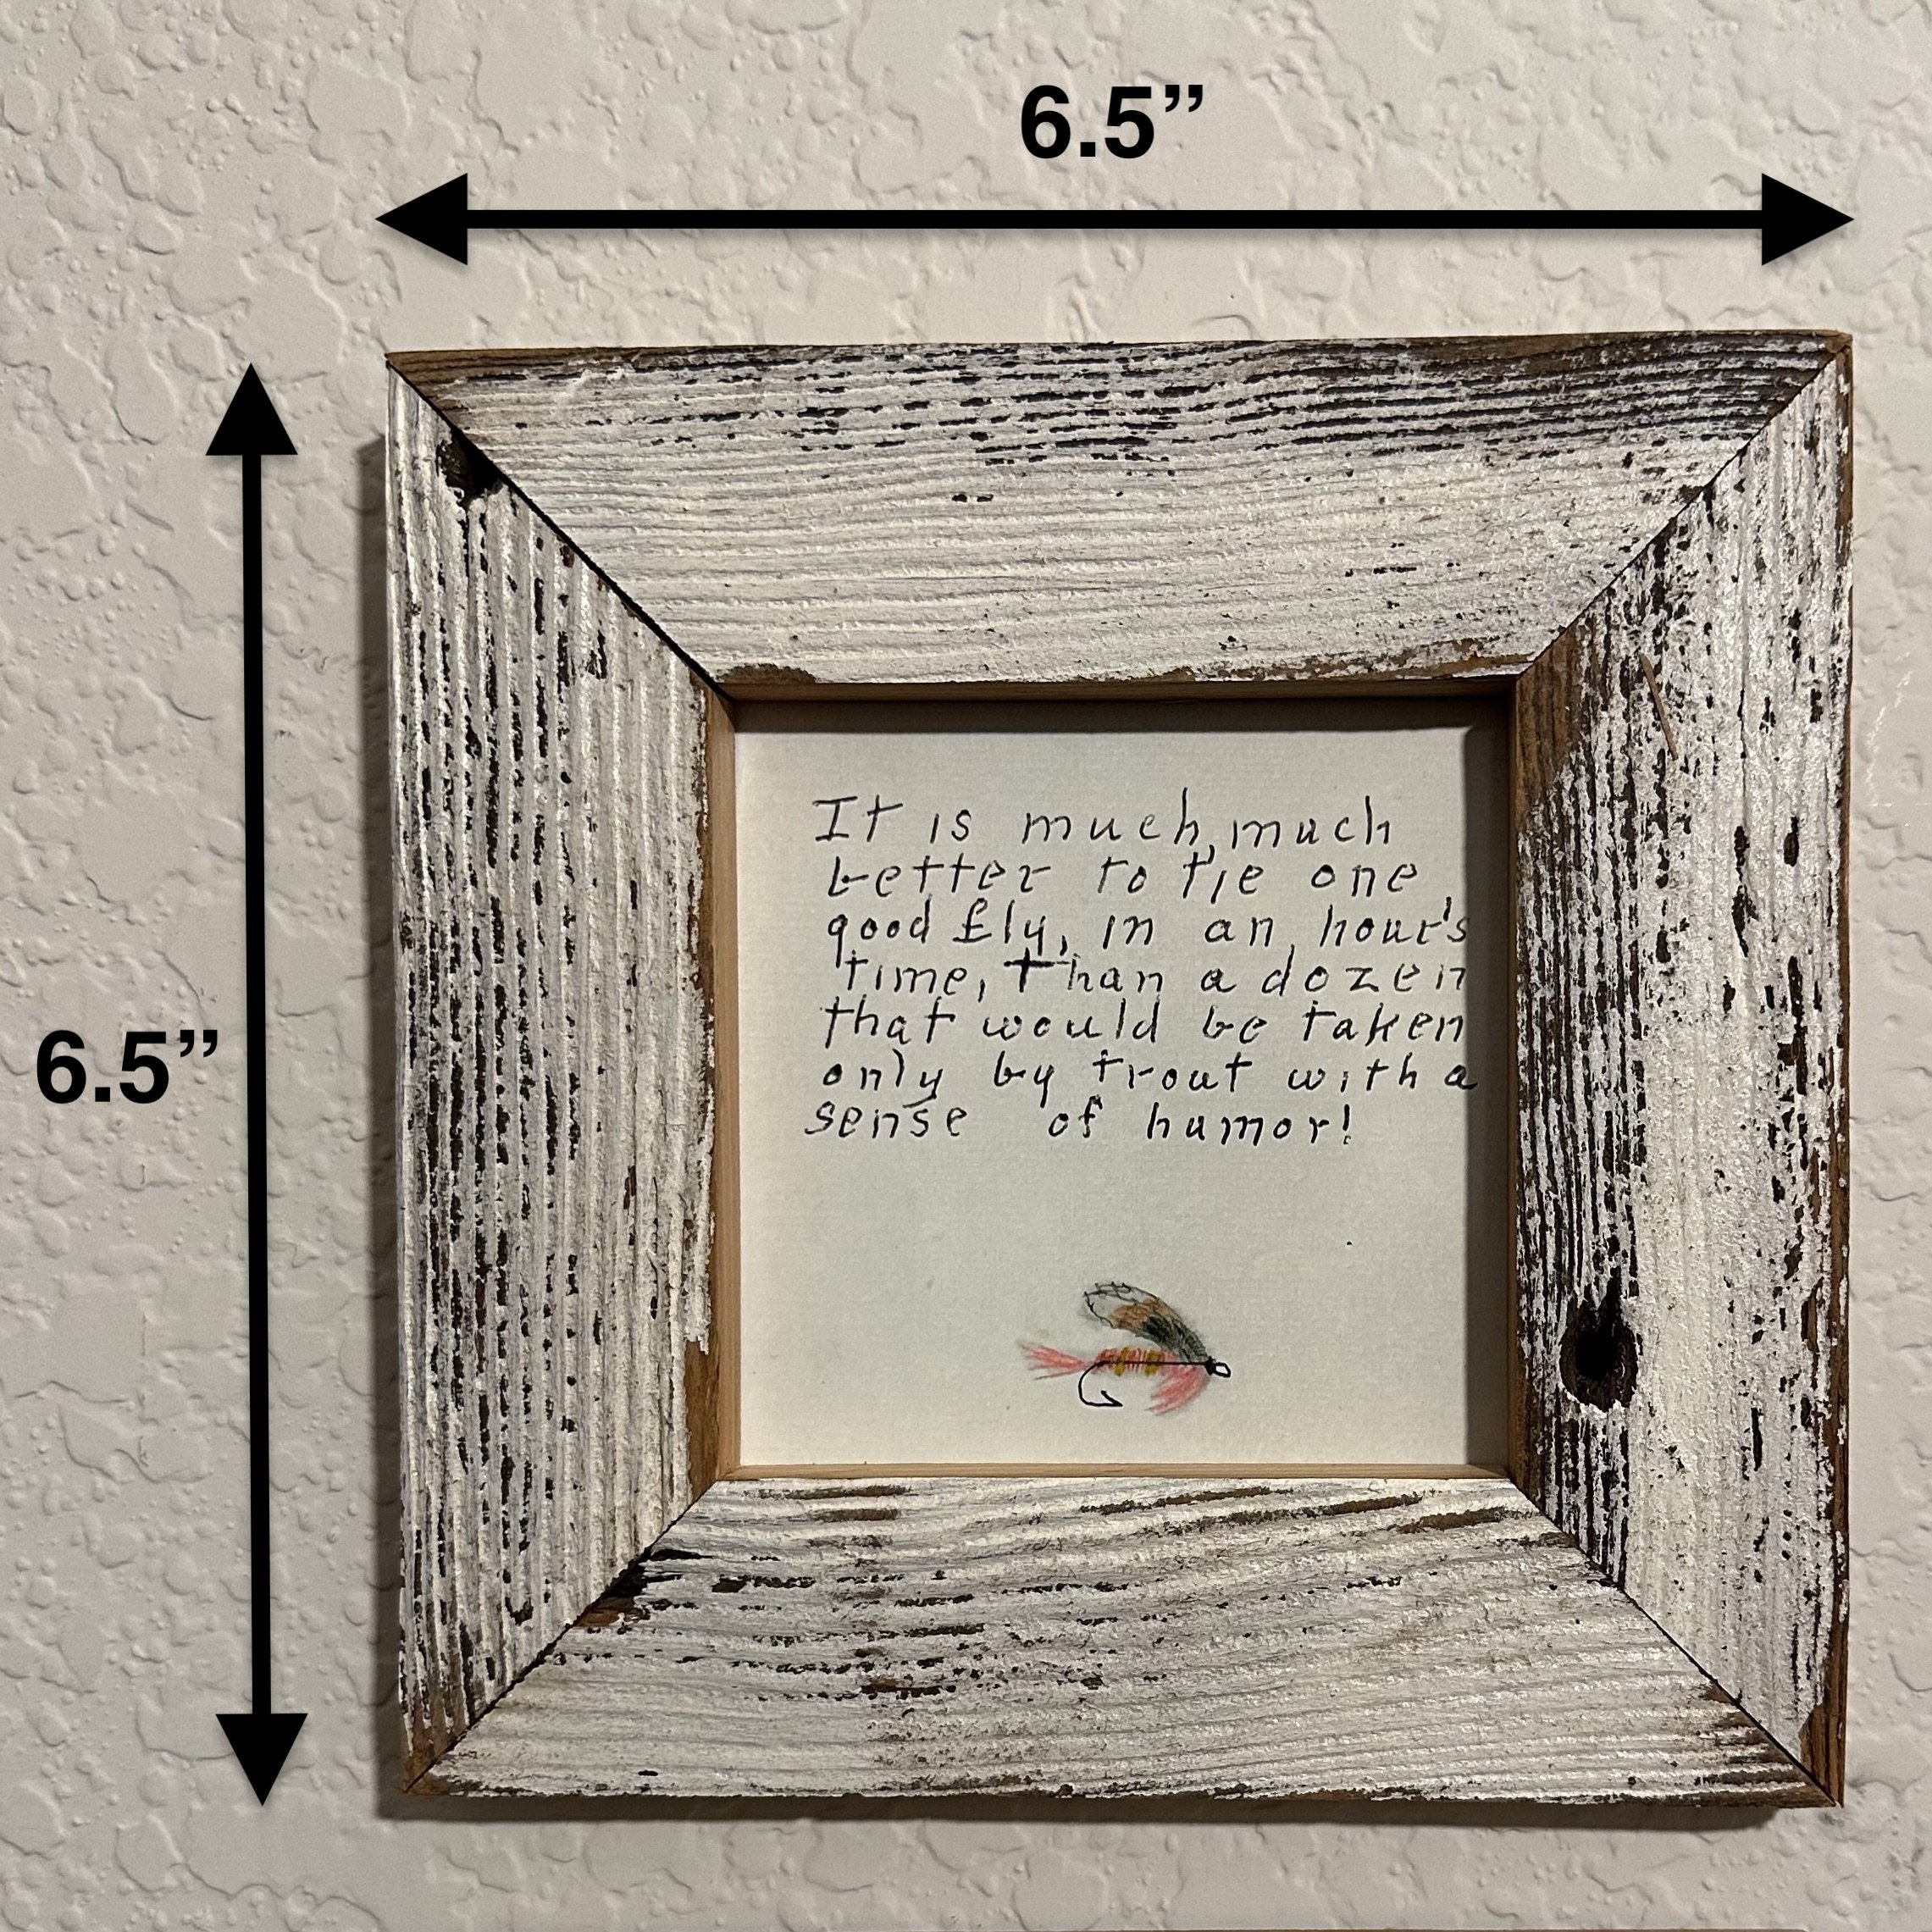 6.5”
6.5”
It is much, much
better to tie one
good fly, in an hour's
time, than a dozen
that would be taken
only by trout with a
sense of humor!